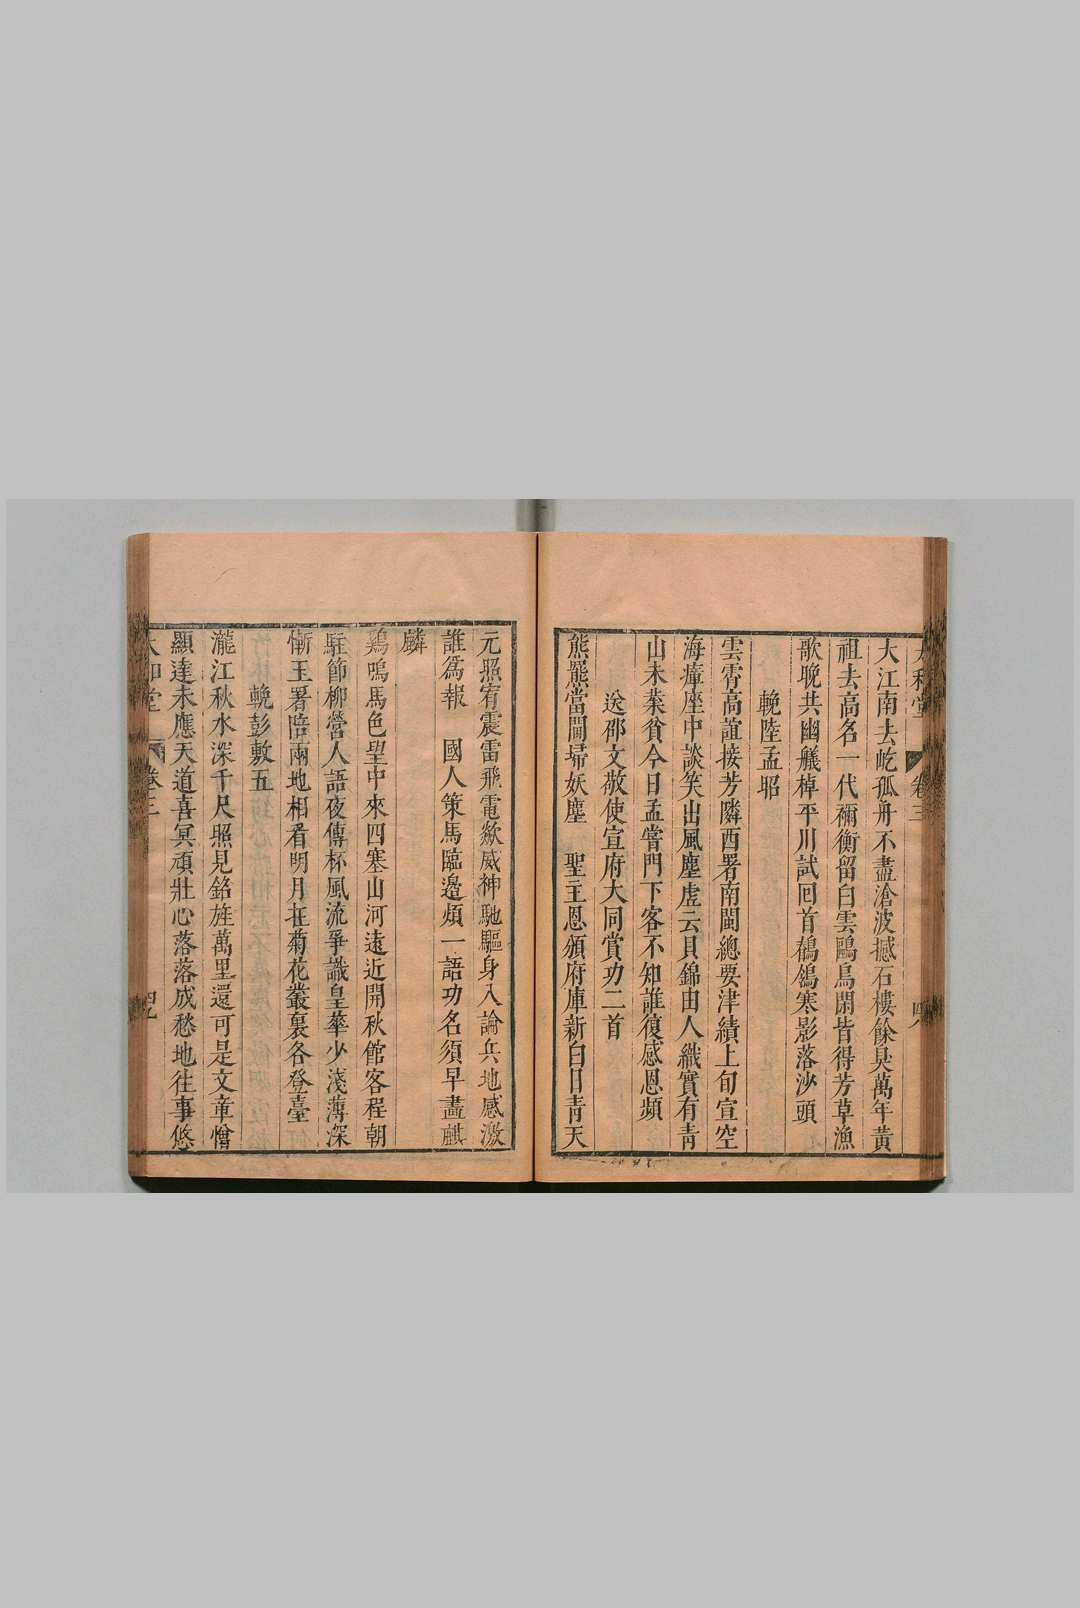 卷三
大江南去屹孤舟不盡滄波撼石樓餘臭萬年黃
祖去高名一代禰衡留白雲鷗鳥閑皆得芳草漁
歌晚共幽艤棹平川試回首鵠鶬寒影落沙頭
輓陸孟昭
雲霄高誼接芳隣西署南閩總要津績上旬宣空
海瘴座中談笑出風塵虛云貝錦由人織實有青
山未業貧今日孟嘗門下客不知誰復感恩頻
送邵文敬使宣府大同賞功二首
熊羆當關埽妖塵　聖主恩頒府庫新白日青天
元照宥震雷飛電歘威神馳驅身入論兵地感激
誰爲報　國人策馬臨邊頻一語功名須早畫麒
麟
鷄鳴馬色望中來四塞山河遠近開秋館客程朝
駐節柳營人語夜傳杯風流爭識皇華少淺薄深
慚玉署陪兩地相看明月在菊花叢裏各登臺
輓彭敷五
瀧江秋水深千尺照見銘旌萬里還可是文章憎
顯達未應天道喜冥頑壯心落落成愁地往事悠
大和堂 卷三